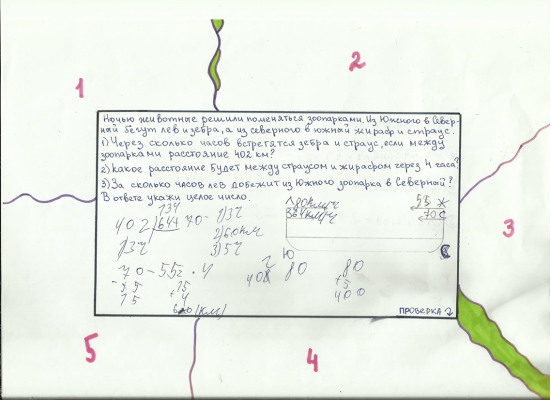 1
2
Ночью животные решили поменяться зоопарками. Из Южного в Север-
ный бегут лев и зебра, а из северного в южный жираф и страус.
1) Через сколько часов встретятся зебра и страус, если между
зоопарками расстояние 402 км?
2) какое расстояние будет между страусом и жирафом через 4 часа?
3) За сколько часов лев добежит из Южного зоопарка в Северный?
В ответе укажи целое число.
134
402 : (64+70= 1) 3ч
2) 60км
1) 3ч 3) 5ч
Л 80км/ч 55 Ж
З 64км/ч 70 С
Ю
С
70-55= · 4
55 15
15 4
(км)
402 80
80
5
400
ПРОВЕРКА 2
3
5
4